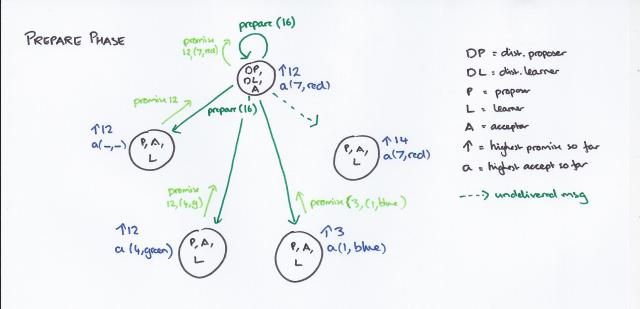 PREPARE PHASE
prepare (16)
promise
12, (7, red)
DP,
DL,
A
↑12
a(7, red)
promise 12
prepare (16)
↑12
a(-,-)
P, A,
L
↑14
a(7, red)
P, A,
L
promise
12, (4, g)
promise (3, (1, blue)
↑12
a(4, green)
P, A,
L
↑3
a(1, blue)
P, A,
L
DP = dist. proposer
DL = dist. learner
P = proposer
L = learner
A = acceptor
↑ = highest promise so far
a = highest accept so far
---> undelivered msg